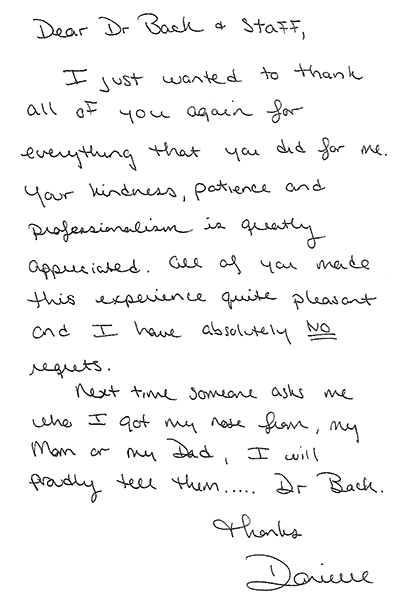 Dear Dr Back & Staff,
I just wanted to thank
all of you again for
everything that you did for me.
Your kindness, patience and
professionalism is greatly
appreciated. All of you made
this experience quite pleasant
and I have absolutely NO
regrets.
Next time someone asks me
who I got my nose from, my
Mom or my Dad, I will
proudly tell them..... Dr Back.
Thanks